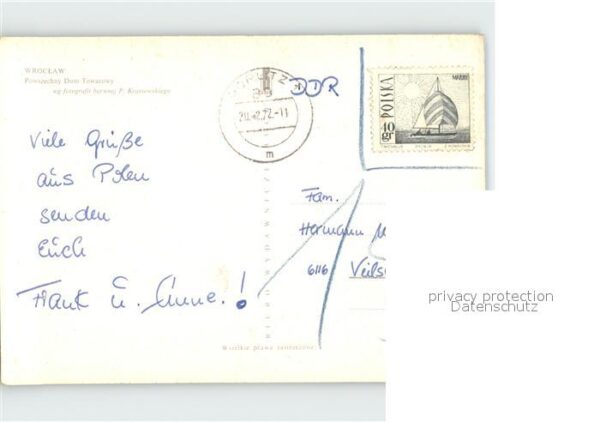 WROCŁAW
Powszechny Dom Towarowy
wg fotografii barwnej P. Krassowskiego
GÖRLITZ
-11
m
DDR
POLSKA
40 gr
Viele Grüße
aus Polen
senden
Euch
Frank u. Anne.!
Fam.
Hermann
6116
Wszelkie prawa zastrzeżone
privacy protection
Datenschutz